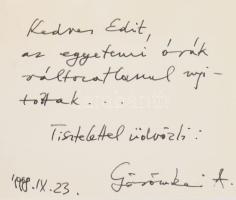 Kedves Edit,
az egyetemi órák
változatlanul nyi-
tottak
Tisztelettel üdvözli:
1998. IX. 23.